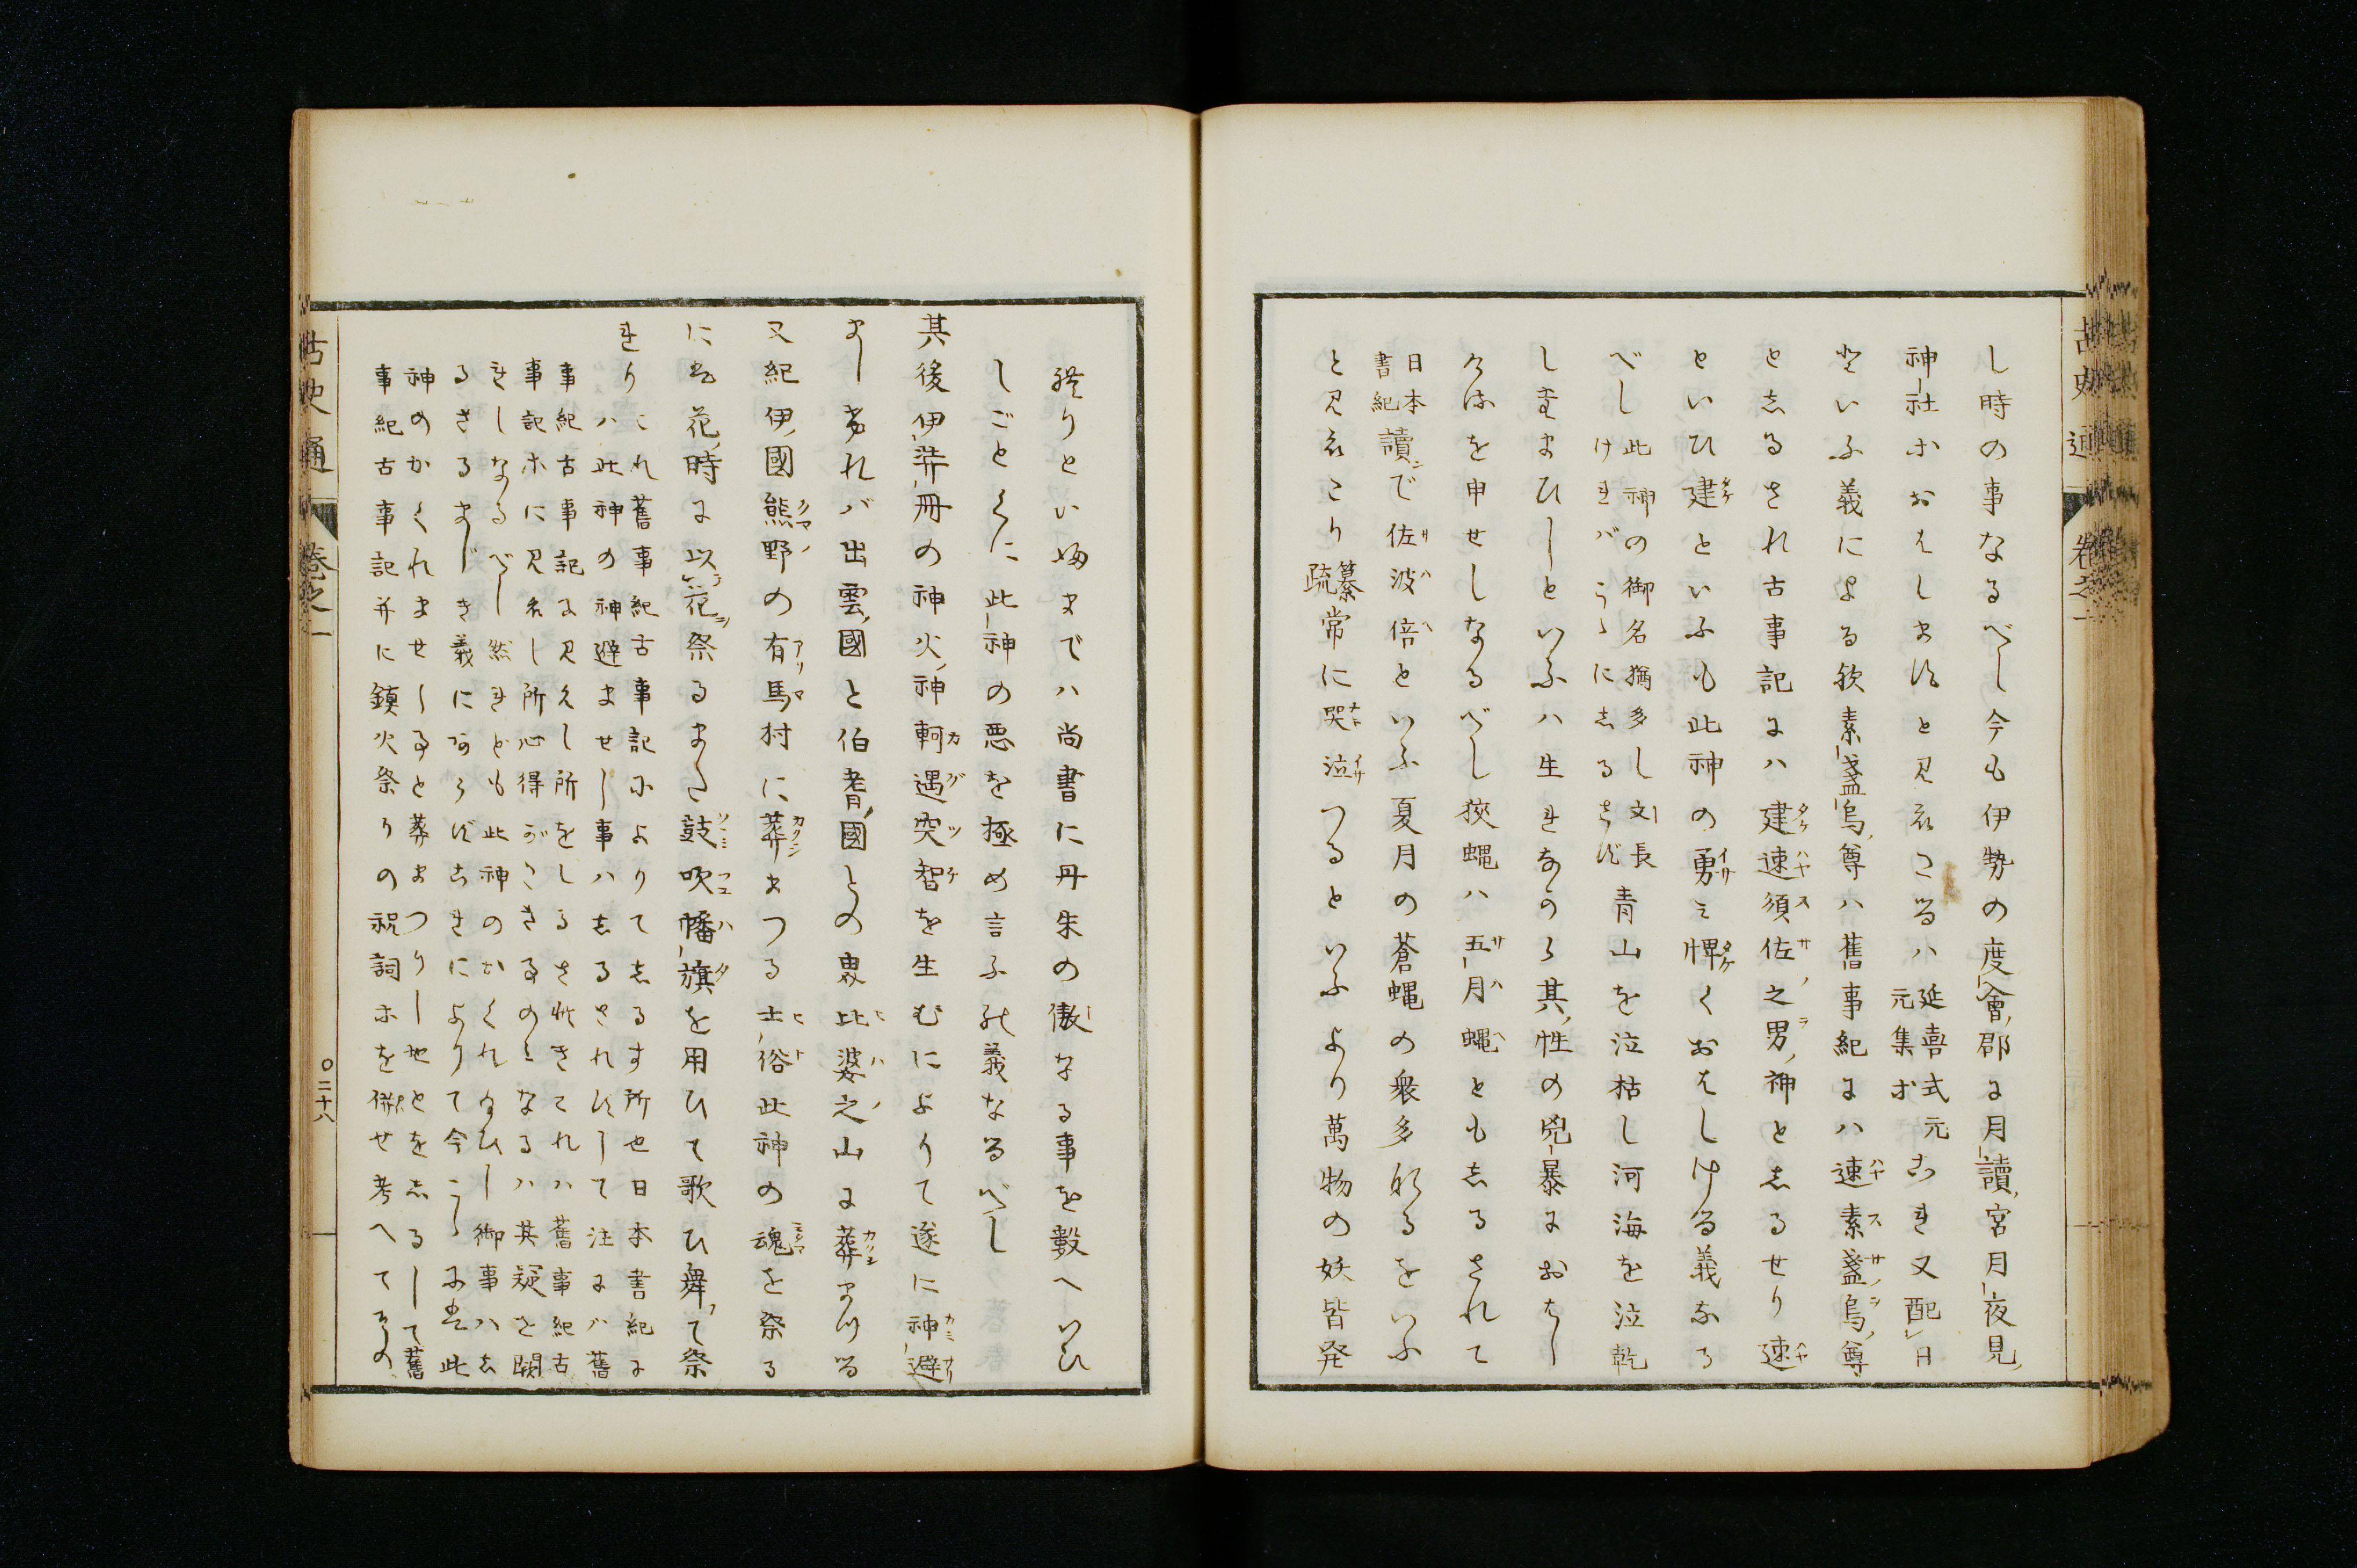 古史通 卷之一
し時の事なるべし今も伊勢の度會郡に月讀宮月夜見
神社ホおはしま須と見えこ留ハ延喜式元元集ホこれ又配日
といふ義によ留歟素盞烏尊ハ舊事紀にハ速素盞烏尊
としるされ古事記にハ建速須佐之男神としるせり速
といひ建といふも此神の勇ミ悍くおはしけ留義なる
べし此神の御名猶多し文長けれバこゝにしるさず青山を泣枯し河海を泣乾
しまひしといふハ生れながら其性の兇暴におはし
けるを申せしなるべし狹蝿ハ五月蝿ともしるされて
日本書紀讀で佐波倍といふ夏月の蒼蝿の衆多なるをいふ
と見えこり纂疏常に哭泣つるといふより萬物の妖皆発
發りといふまでハ尚書に丹朱の傲なる事を數へいひ
しごとくに此神の悪を極め言ふ乃義な留べし
其後伊弉冊の神火神軻遇突智を生むによりて遂に神避
ましけれバ出雲國と伯耆國との界比婆之山に葬まつ留
又紀伊國熊野の有馬村に葬まつる土俗此神の魂を祭る
に花時に以花祭るまた鼓吹幡旗を用ひて歌ひ舞て祭
れりこれ舊事紀古事記によりてしるす所也日本書紀に
ハ此神の神避ませし事ハしるされずして注にバ舊
事紀古事記に見えし所をしるされきこれハ舊事紀古
事記ホに見えし所心得がこき事のミなるハ其疑を闕
れしなるべし然れども此神のかくれ給ひし御事ハし
るさるまじき義にあらずこれによりて今こゝに此
神のかくれませし事と葬まつりし地とをしるして舊
事紀古事記并に鎮火祭りの祝詞ホを併せ考へてその
古史通 卷之一 〇二十八